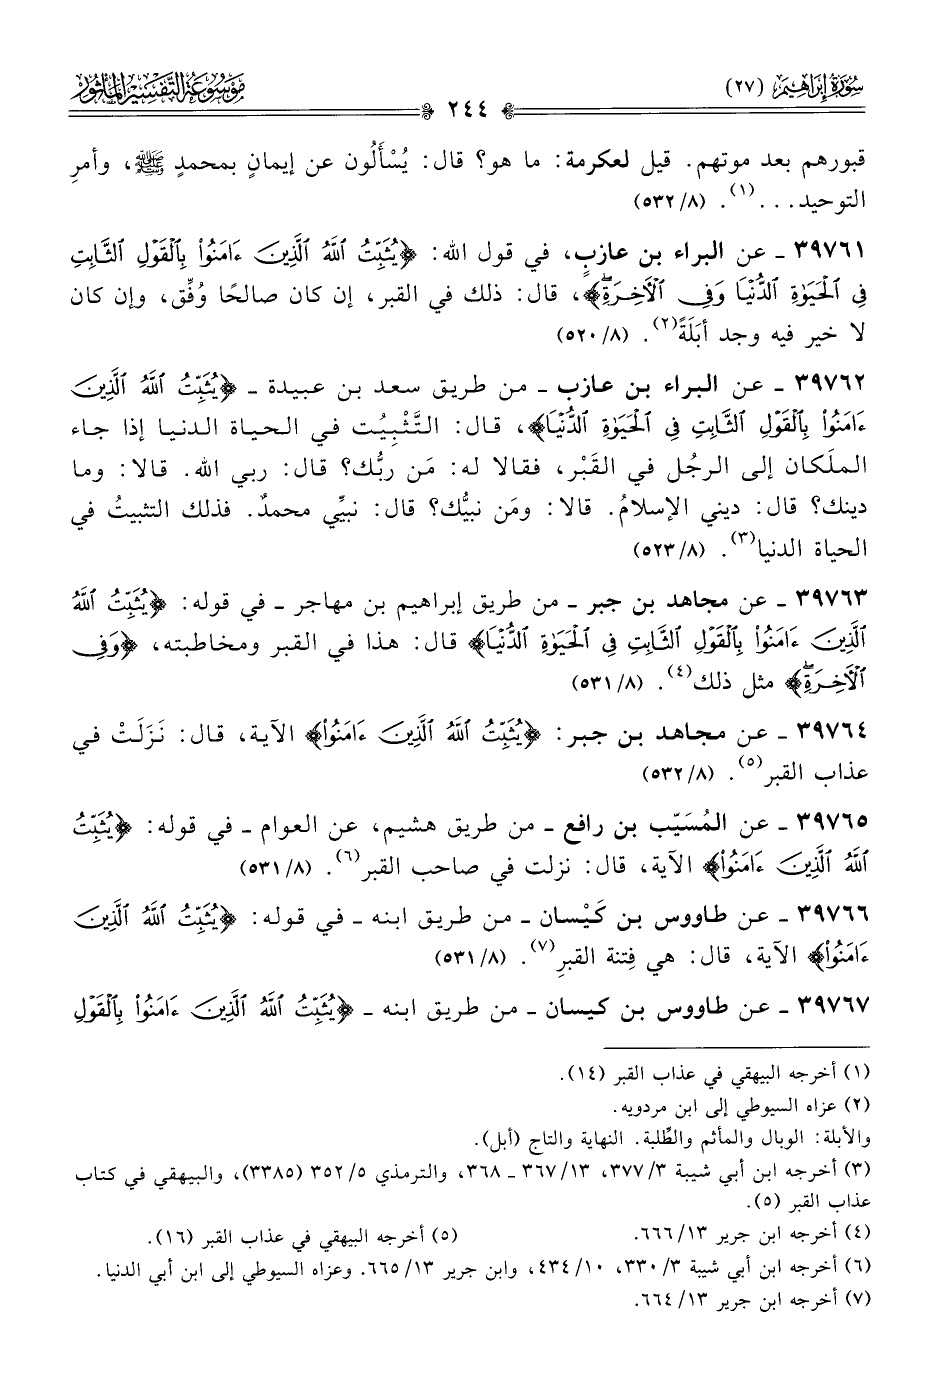 سُورَةُ إِبْرَاهِيمَ (٢٧)
٢٤٤
مَوْسُوعَةُ التَّفْسِيرِ المَأْثُور
قبورهم بعد موتهم. قيل لعكرمة: ما هو؟ قال: يُسْأَلُون عن إيمانٍ بمحمدٍ ﷺ، وأمرِ
التوحيد...(١). (٨/٥٣٢)
٣٩٧٦١ ـ عن البراء بن عازبٍ، في قول الله: ﴿يُثَبِّتُ ٱللَّهُ ٱلَّذِينَ ءَامَنُواْ بِٱلْقَوْلِ ٱلثَّابِتِ
فِي ٱلْحَيَوٰةِ ٱلدُّنْيَا وَفِي ٱلْأَخِرَةِۖ﴾، قال: ذلك في القبر، إن كان صالحًا وُفِّق، وإن كان
لا خير فيه وجد أبَلَةً(٢). (٨/٥٢٠)
٣٩٧٦٢ ـ عن البراء بن عازب ـ من طريق سعد بن عبيدة ـ ﴿يُثَبِّتُ ٱللَّهُ ٱلَّذِينَ
ءَامَنُواْ بِٱلْقَوْلِ ٱلثَّابِتِ فِي ٱلْحَيَوٰةِ ٱلدُّنْيَا﴾، قال: التَّثْبِيْت في الحياة الدنيا إذا جاء
الملَكان إلى الرجُل في القَبْر، فقالا له: مَن ربُّك؟ قال: ربي الله. قالا: وما
دينك؟ قال: ديني الإسلامُ. قالا: ومَن نبيُّك؟ قال: نبيِّي محمدٌ. فذلك التثبيتُ في
الحياة الدنيا(٣). (٨/٥٢٣)
٣٩٧٦٣ ـ عن مجاهد بن جبر ـ من طريق إبراهيم بن مهاجر ـ في قوله: ﴿يُثَبِّتُ ٱللَّهُ
ٱلَّذِينَ ءَامَنُواْ بِٱلْقَوْلِ ٱلثَّابِتِ فِي ٱلْحَيَوٰةِ ٱلدُّنْيَا﴾ قال: هذا في القبر ومخاطبته، ﴿وَفِي
ٱلْأَخِرَةِۖ﴾ مثل ذلك(٤). (٨/٥٣١)
٣٩٧٦٤ ـ عن مجاهد بن جبر: ﴿يُثَبِّتُ ٱللَّهُ ٱلَّذِينَ ءَامَنُواْ﴾ الآية، قال: نَزَلَتْ في
عذاب القبر(٥). (٨/٥٣٢)
٣٩٧٦٥ ـ عن المُسَيّب بن رافع ـ من طريق هشيم، عن العوام ـ في قوله: ﴿يُثَبِّتُ
ٱللَّهُ ٱلَّذِينَ ءَامَنُواْ﴾ الآية، قال: نزلت في صاحب القبر(٦). (٨/٥٣١)
٣٩٧٦٦ ـ عن طاووس بن كَيْسان ـ من طريق ابنه ـ في قوله: ﴿يُثَبِّتُ ٱللَّهُ ٱلَّذِينَ
ءَامَنُواْ﴾ الآية، قال: هي فِتنة القبرِ(٧). (٨/٥٣١)
٣٩٧٦٧ ـ عن طاووس بن كيسان ـ من طريق ابنه ـ ﴿يُثَبِّتُ ٱللَّهُ ٱلَّذِينَ ءَامَنُواْ بِٱلْقَوْلِ
(١) أخرجه البيهقي في عذاب القبر (١٤).
(٢) عزاه السيوطي إلى ابن مردويه.
والأبلة: الوبال والمأثم والطَّلبة. النهاية والتاج (أبل).
(٣) أخرجه ابن أبي شيبة ٣/٣٧٧، ١٣/٣٦٧ ـ ٣٦٨، والترمذي ٥/٣٥٢ (٣٣٨٥)، والبيهقي في كتاب
عذاب القبر (٥).
(٤) أخرجه ابن جرير ١٣/٦٦٦. (٥) أخرجه البيهقي في عذاب القبر (١٦).
(٦) أخرجه ابن أبي شيبة ٣/٣٣٠، ١٠/٤٣٤، وابن جرير ١٣/٦٦٥. وعزاه السيوطي إلى ابن أبي الدنيا.
(٧) أخرجه ابن جرير ١٣/٦٦٤.